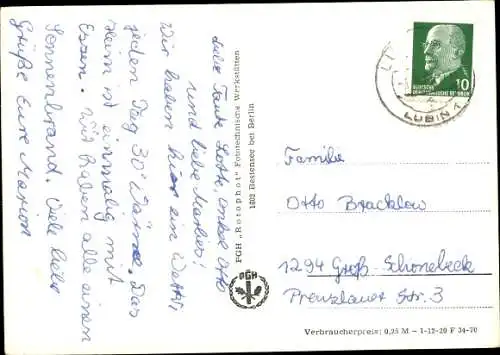 Liebe Tante Lotte, Onkel Otto
und liebe Marlies!
Wir haben hier ein Wetter,
jeden Tag 30° Wärme. Das
Heim ist einmalig mit
Essen. Wir haben alle einen
Sonnenbrand. Viele liebe
Grüße Eure Marion
PGH „Rotophot" Fototechnische Werkstätten
1502 Bestensee bei Berlin
PGH
10
DEUTSCHE
DEMOKRATISCHE REPUBLIK
LUBMIN 1
Familie
Otto Bracklow
1294 Groß-Schönebeck
Prenzlauer Str. 3
Verbraucherpreis: 0,25 M – 1-12-20 F 34-70